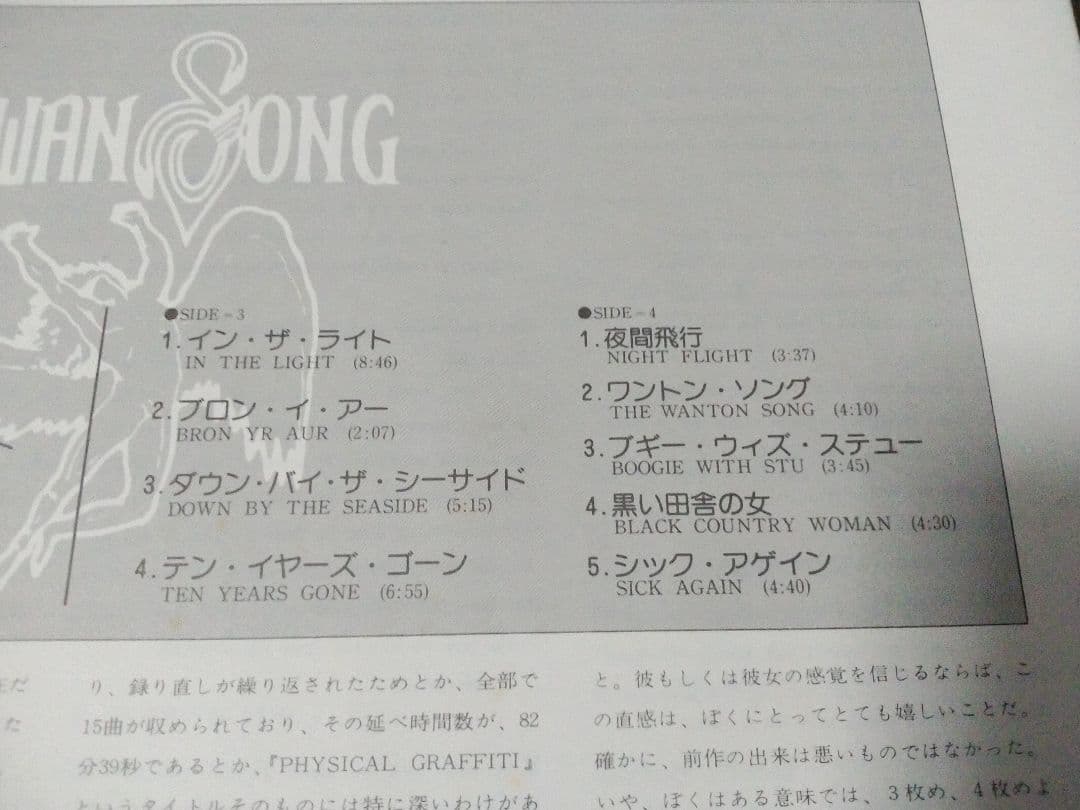 WAN SONG
●SIDE-3
1.イン・ザ・ライト
IN THE LIGHT (8:46)
2.ブロン・イ・アー
BRON YR AUR (2:07)
3.ダウン・バイ・ザ・シーサイド
DOWN BY THE SEASIDE (5:15)
4.テン・イヤーズ・ゴーン
TEN YEARS GONE (6:55)
●SIDE-4
1.夜間飛行
NIGHT FLIGHT (3:37)
2.ワントン・ソング
THE WANTON SONG (4:10)
3.ブギー・ウィズ・ステュー
BOOGIE WITH STU (3:45)
4.黒い田舎の女
BLACK COUNTRY WOMAN (4:30)
5.シック・アゲイン
SICK AGAIN (4:40)
だ
た
り、録り直しが繰り返されたためとか、全部で
15曲が収められており、その延べ時間数が、82
分39秒であるとか、『PHYSICAL GRAFFITI』
というタイトルそのものには特に深いわけがあ
と。彼もしくは彼女の感覚を信じるならば、こ
の直感は、ぼくにとってとても嬉しいことだ。
確かに、前作の出来は悪いものではなかった。
いや、ぼくはある意味では、3枚め、4枚めよ